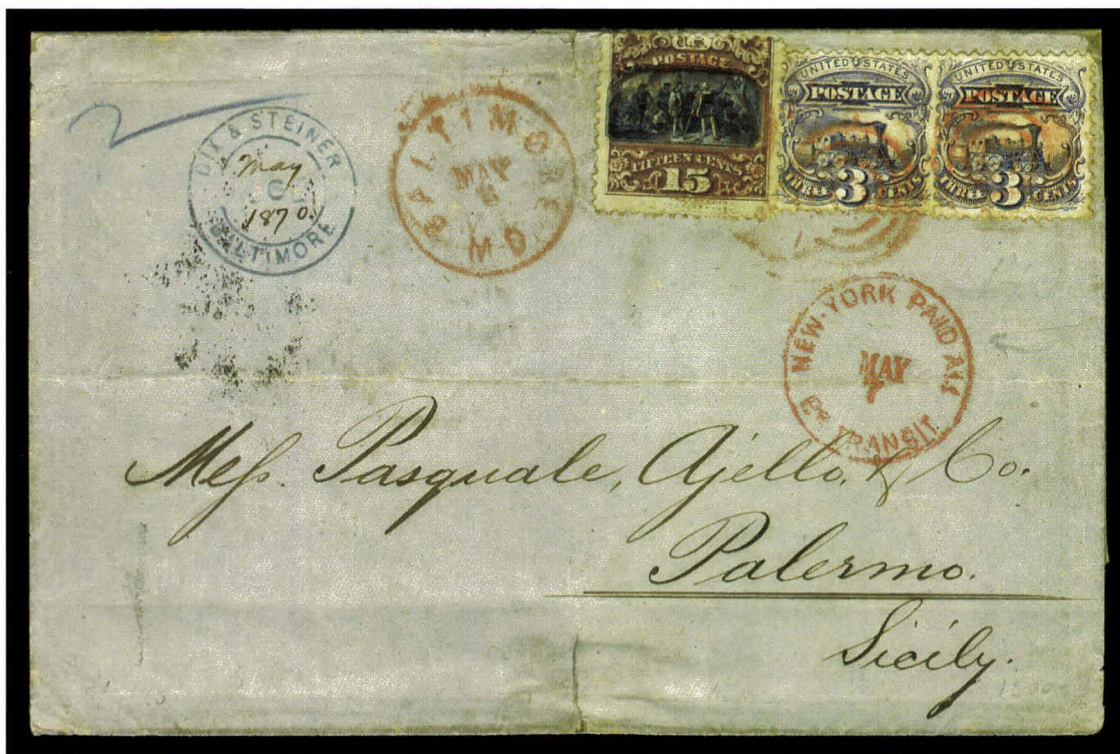 2
DIX & STEINER
May
6
1870.
BALTIMORE
BALTIMORE
MAY
6
MD
U.S.
POSTAGE
FIFTEEN CENTS
15
UNITED STATES
POSTAGE
THREE 3 CENTS
UNITED STATES
POSTAGE
THREE 3 CENTS
NEW-YORK PAID ALL
MAY
7
Br TRANSIT.
Mess. Pasquale, Ajello, & Co.
Palermo.
Sicily.